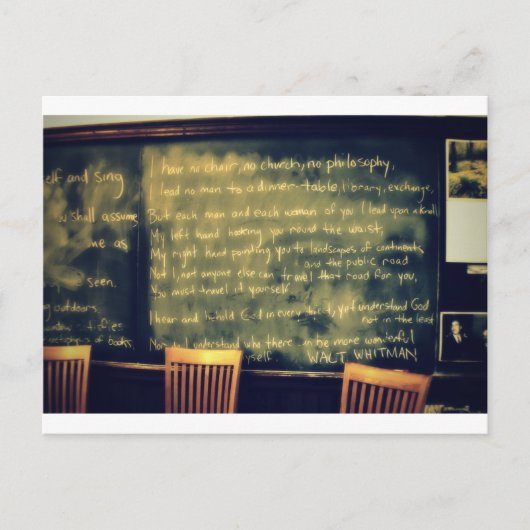 elf and sing
you shall assume
me as
seen.
outdoors.
of books.
I have no chair, no church, no philosophy,
I lead no man to a dinner-table, library, exchange,
But each man and each woman of you I lead upon a knoll
My left hand hooking you round the waist,
My right hand pointing you to landscapes of continents
and the public road
Not I, not anyone else can travel that road for you,
You must travel it yourself.
I hear and behold God in every object, yet understand God
not in the least
Nor do I understand who there can be more wonderful
myself. WALT WHITMAN